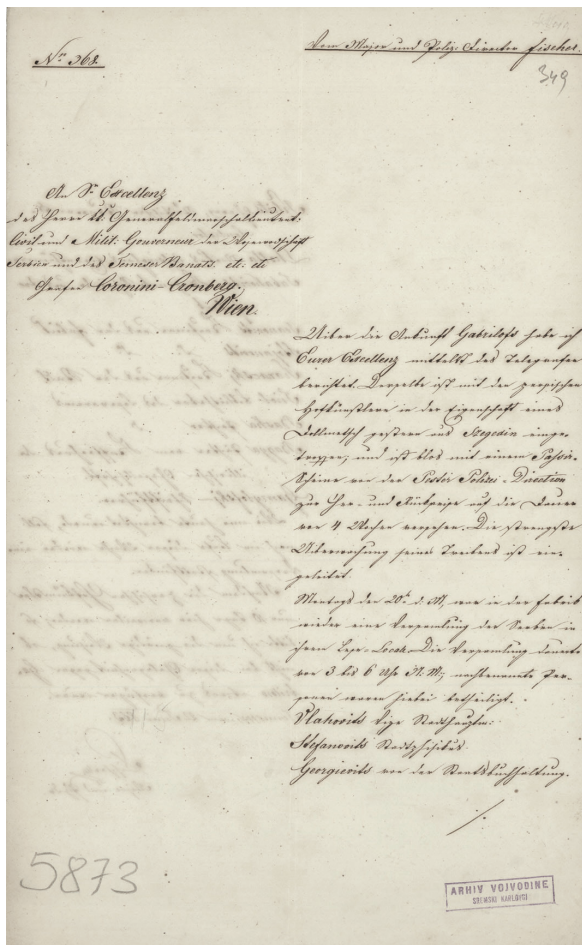 Vom Major und Polizei Director Fischer.
Nr. 368.
349
An Sr. Excellenz
des Herrn kk. Generalfeldmarschallieutent:
Civil und Milit: Gouverneur der Wojwodschaft
Serbien und des Temeser Banats. etc: etc
Grafen Coronini-Cronberg.
Wien.
Uiber die Ankunft Gabriloffs habe ich
Eurer Excellenz mittelst des Telegrafen
berichtet. Derselbe ist mit den persischen
Hofkünstlern in der Eigenschaft eines
Dollmetsch gestern aus Szegedin einge-
troffen, und ist blos mit einem Passir-
Scheine von der Pester Polizei-Direction
zur Her- und Rückreise auf die Dauer
von 4 Wochen versehen. Die strengste
Uiberwachung seines Treibens ist ein-
geleitet.
Montags den 20t. d. M, war in der Fabrik
wieder eine Versamlung der Serben in
ihrem Lese-Locale. Die Versamlung dauerte
von 3 bis 6 Uhr N. M; nachbenannte Per-
sonen waren hiebei betheiligt.
Vlahovits Vize Stadthauptm:
Stefanovits Stadtphisikus
Georgievits von der Staatsbuchhaltung.
./.
5873
ARHIV VOJVODINE
SREMSKI KARLOVCI